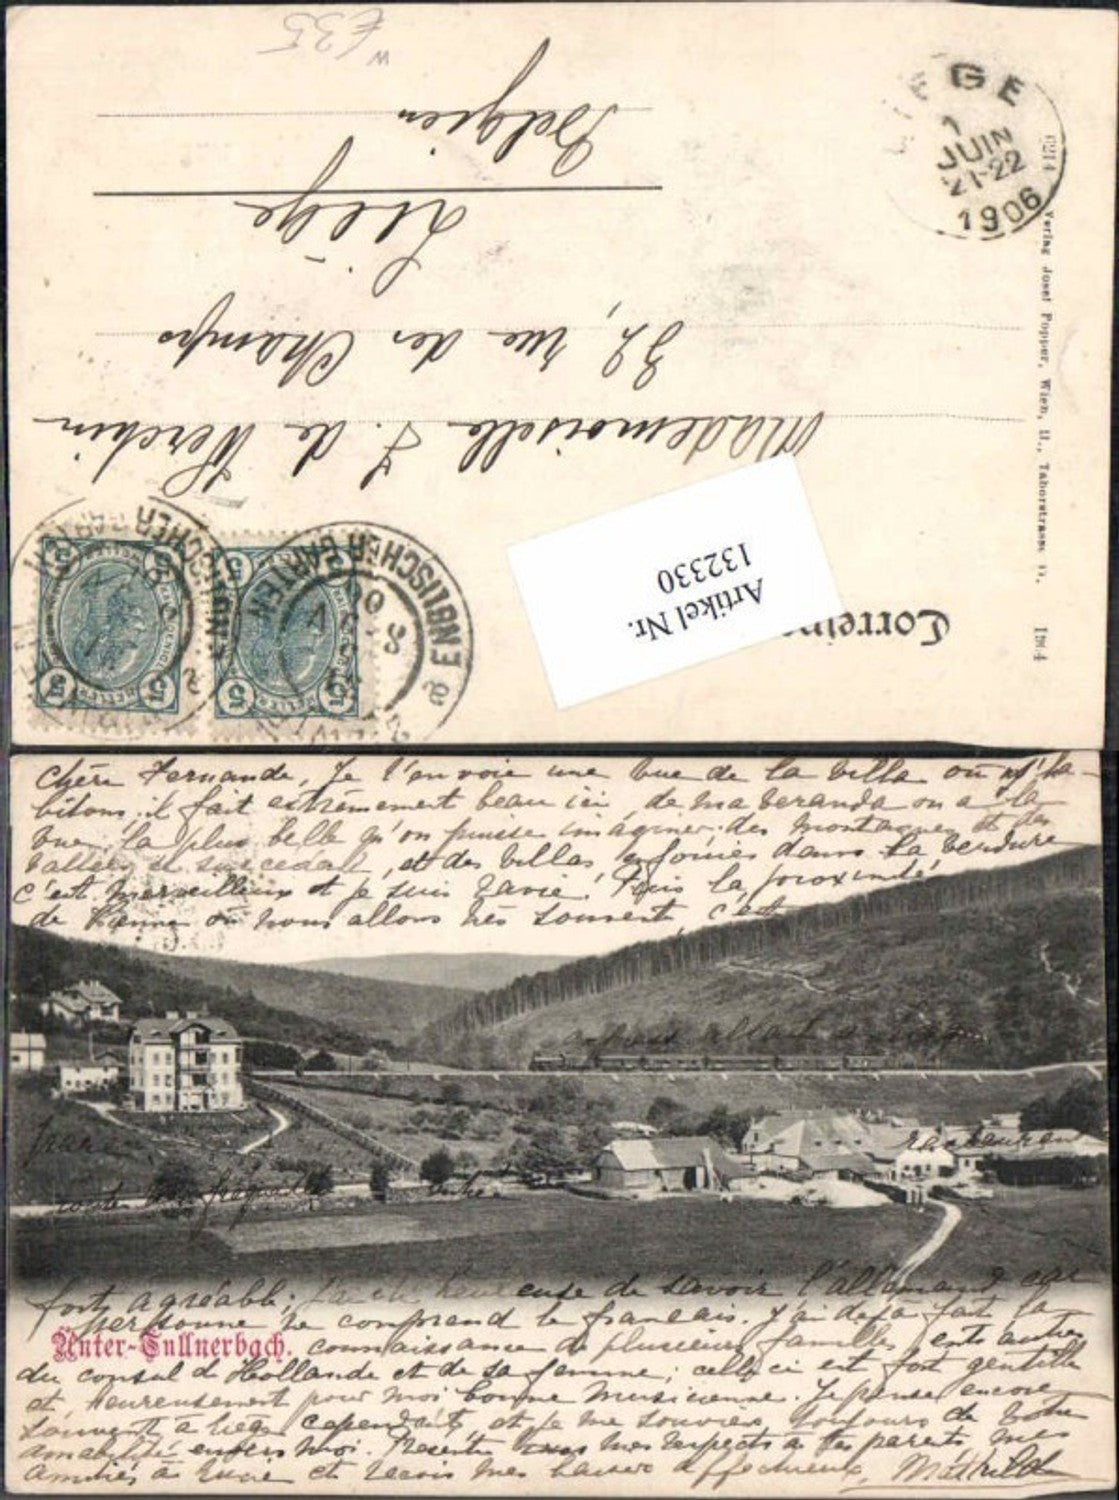 W €35
Mademoiselle F. de Werchin
32, rue des Champs
Liège
Belgien
LIEGE
1
JUIN
21-22
1906
6214 Verlag Josef Popper, Wien, II., Taborstrasse 1904
ENGLISCHER GARTEN
ENGLISCHER GARTEN
5 5
HELLER
5 5
HELLER
Artikel Nr.
132330
Correspo
Chère Fernande, Je t'envoie une vue de la villa où j'ha-
bitons; il fait extrêmement beau ici, de ma veranda on a la
vue la plus belle qu'on puisse imaginer; des montagnes et des
vallées se succedant, et des villas enfouies dans la verdure
c'est merveilleux et je suis ravie! Puis la proximité
de Vienne où nous allons très souvent, c'est
express allant à
restaurant
route
fort agréable; heureuse de savoir l'allemand car
personne ne comprend le français. J'ai déjà fait la
Unter-Tullnerbach.
connaissance de plusieurs familles, entr'autres
du consul d'Hollande et de sa femme; celle-ci est fort gentille
et heureusement pour moi bonne musicienne. Je pense encore
souvent à Liège cependant et je me souviens toujours de votre
amabilité envers moi. Présentes mes respects à tes parents, mes
amitiés à Lucie et reçois mes baisers affectueux, Mathilde